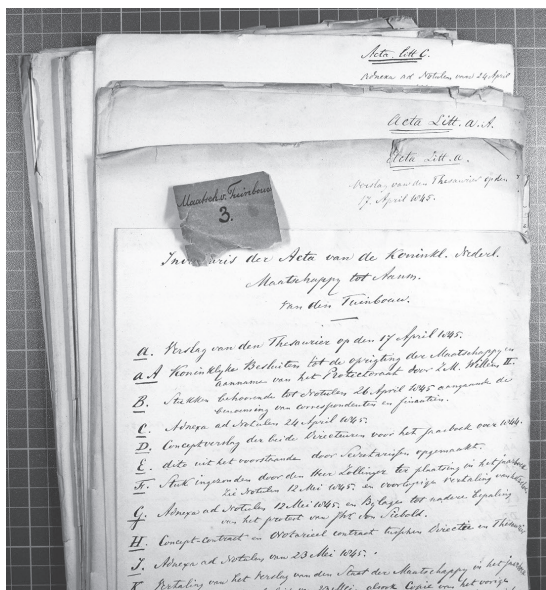 Acta. Litt C.
Adnexa ad Notulen van 24 April
Acta Litt. a. A.
Acta Litt. a.
Verslag van den Thesaurier op den
17 April 1845.
Maatsch. v. Tuinbouw
3.
Inventaris der Acta van de Koninkl. Nederl.
Maatschappy tot Aanm.
van den Tuinbouw.
a. Verslag van den Thesaurier op den 17 April 1845.
a A Koninklyke Besluiten tot de oprigting der Maatschappy en
aanname van het Protectoraat door Z.M. Willem II.
B. Stukken behoorende tot Notulen 26 April 1845 aangaande de
benoeming van correspondenten en financien.
C. Adnexa ad Notulen 24 April 1845.
D. Conceptverslag der beide Directeuren voor het Jaarboek over 1844.
E. dito uit het voorstaande door Secretarissen opgemaakt.
F. Stuk ingezonden door den Heer Zollinger ter plaatsing in het jaarboek
Zie Notulen 12 Mei 1845, en voorloopige vertaling van
G. Adnexa ad Notulen 12 Mei 1845. en Bylagen tot nadere bepaling
van het protest van Jhr. von Siebold.
H. Concept-Contract en Notarieel contract tusschen Directie en Thesaurier
J. Adnexa ad Notulen van 23 Mei 1845.
K. Vertaling van het verslag van den Staat der Maatschappy in het jaarboek
23 Mei 1845, alsook Copie van het vorige